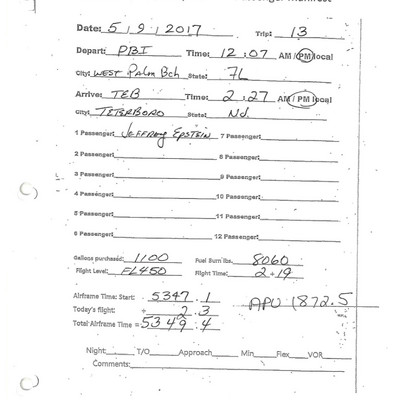 Date: 5/9/2017 Trip: 13
Depart: PBI Time: 12:07 AM / PM local
City: WEST PALM BCH State: FL
Arrive: TEB Time: 2:27 AM / PM local
City: TETERBORO State: NJ
1 Passenger: JEFFREY EPSTEIN 7 Passenger:
2 Passenger: 8 Passenger:
3 Passenger: 9 Passenger:
4 Passenger: 10 Passenger:
5 Passenger: 11 Passenger:
6 Passenger: 12 Passenger:
Gallons purchased: 1100 Fuel Burn lbs. 8060
Flight Level: FL450 Flight Time: 2+19
Airframe Time: Start: 5347.1 APU 1872.5
Today's flight: + 2.3
Total Airframe Time = 5349.4
Night: T/O Approach Min Flex VOR
Comments: